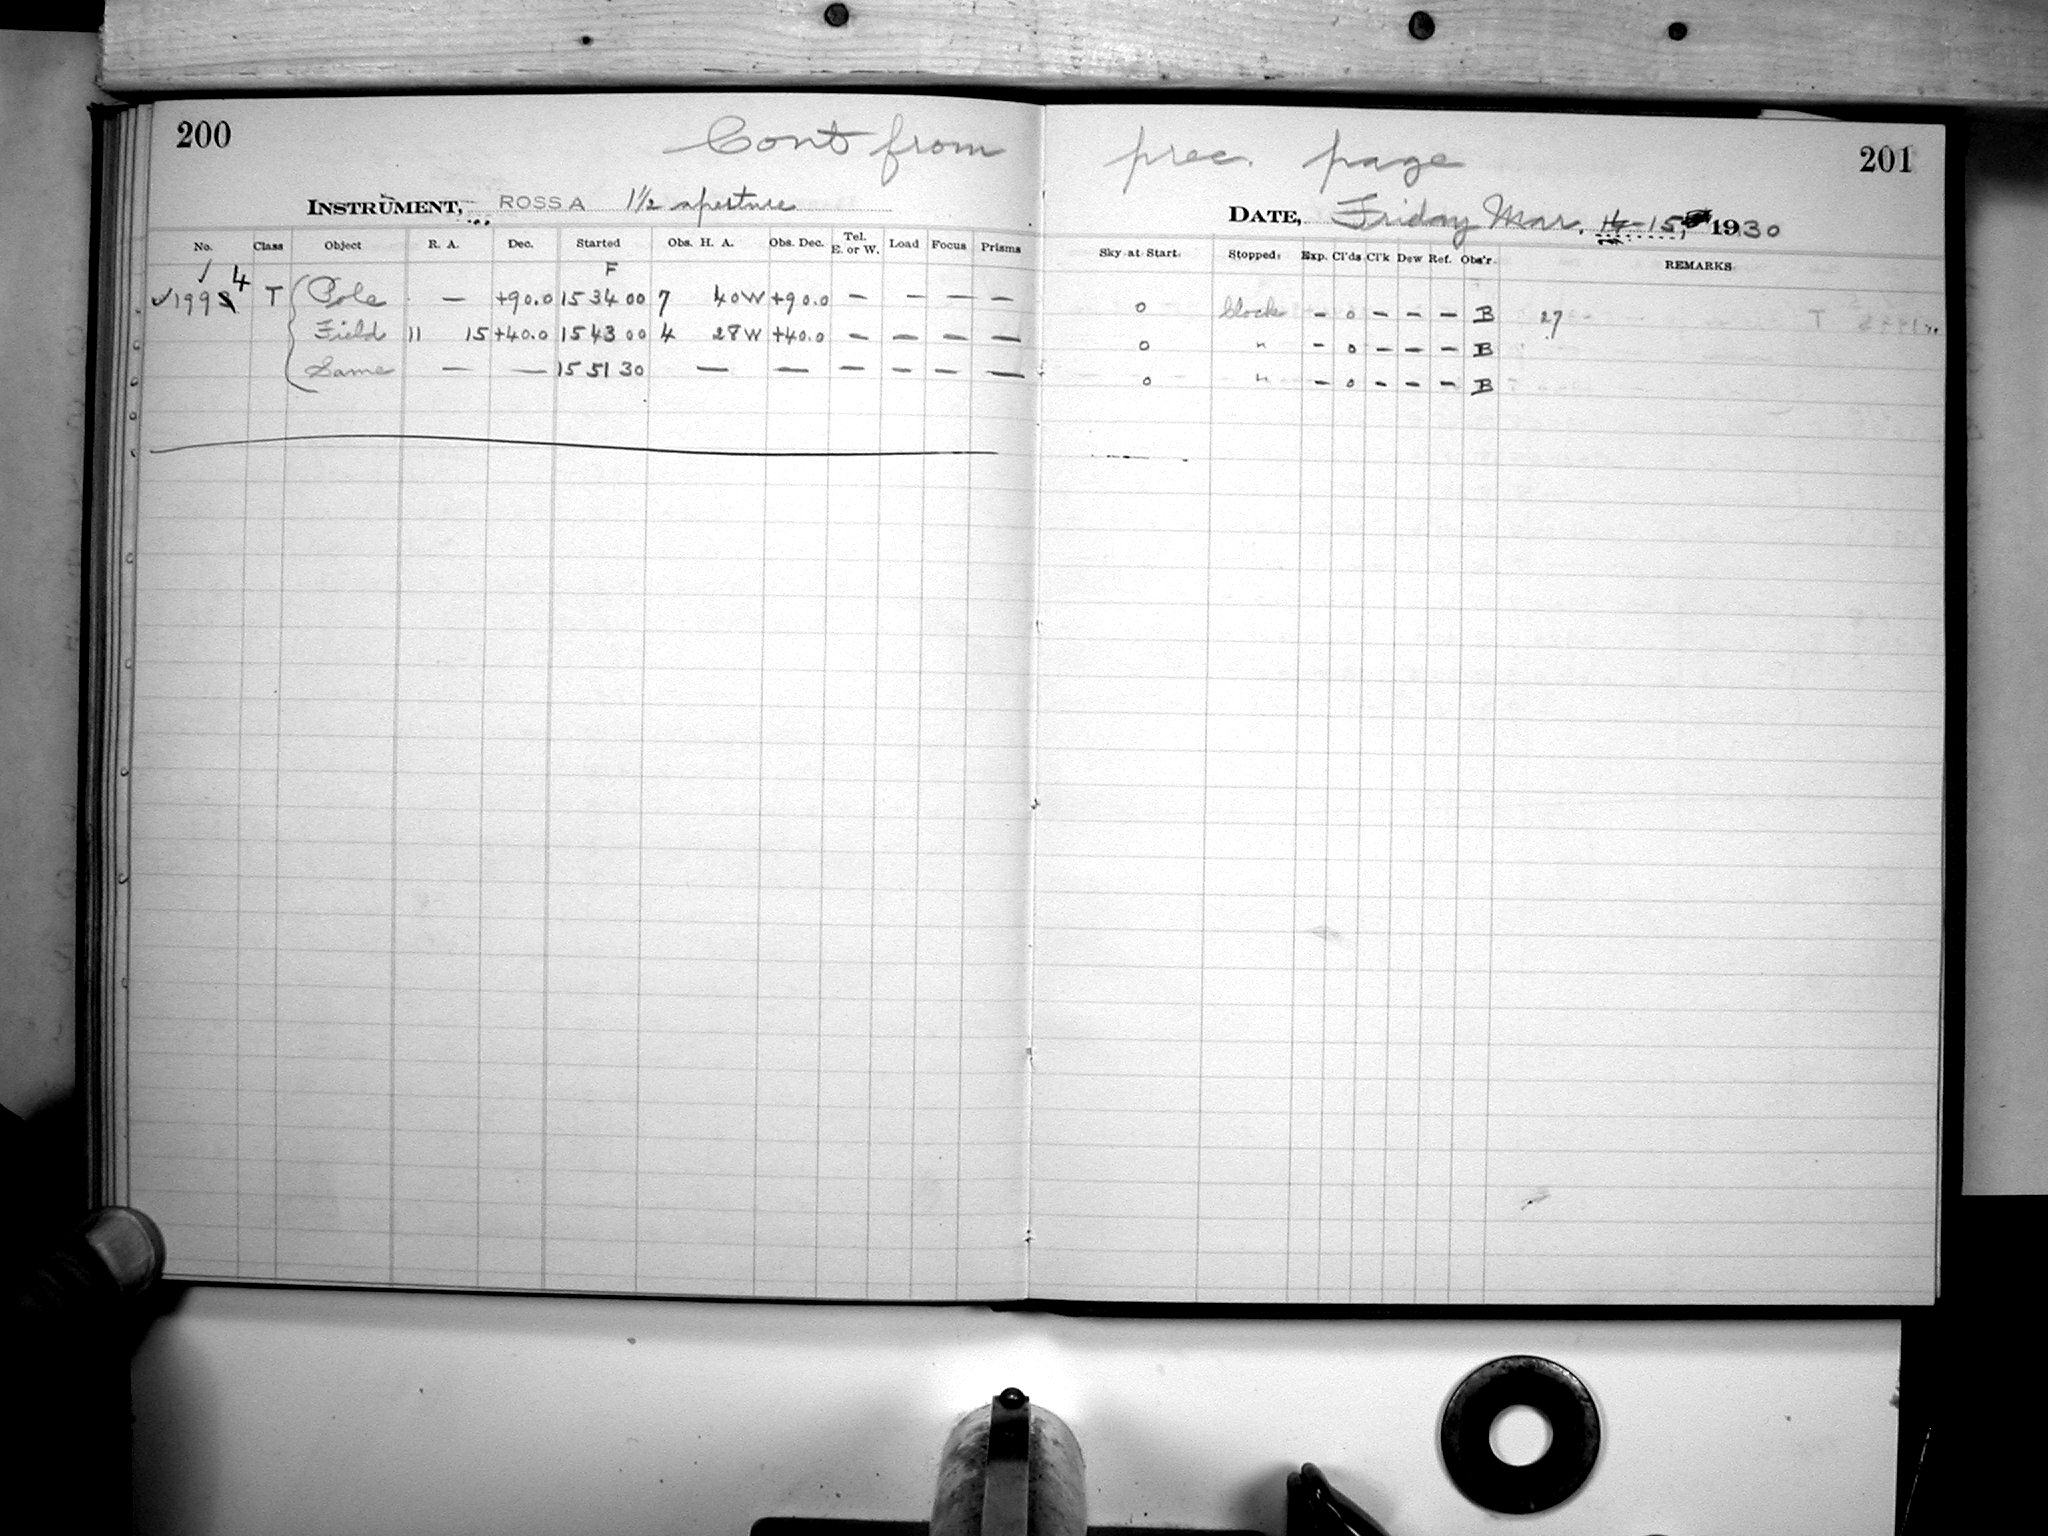 200
Cont from prec. page
201
INSTRUMENT, ROSS A 1½ aperture
DATE, Friday Mar. 14-15, 1930
No. Class Object R. A. Dec. Started Obs. H. A. Obs. Dec. Tel. E. or W. Load Focus Prisms Sky at Start. Stopped. Exp. Cl'ds Cl'k Dew Ref. Obs'r. REMARKS
F
✓ 199 4 T Pole — +90.0 15 34 00 7 40W +90.0 — — — — 0 Clock — 0 — — — B 27
Field 11 15 +40.0 15 43 00 4 28W +40.0 — — — — 0 " — 0 — — — B
Same — — 15 51 30 — — — — — — 0 " — 0 — — — B